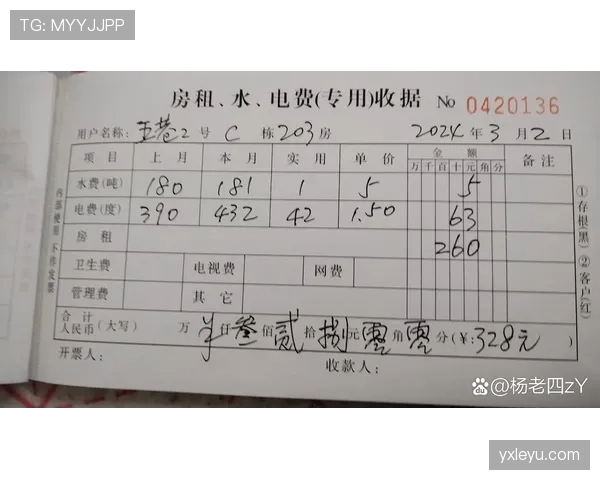 TG: MYYJJPP
房租、水、电费(专用)收据 No 0420136
用户名称: 五巷2号 C 栋 203 房 2024 年 3 月 2 日
项目 上月 本月 实用 单价 金额 备注
万 千 百 十 元 角 分
水费(吨) 180 181 1 5 5
电费(度) 390 432 42 1.50 63
房租 260
卫生费 电视费 网费
管理费 其它
合计人民币(大写) 万 仟 叁 佰 贰 拾 捌 元 零 角 零 分 (¥: 328元)
开票人: 收款人:
内部使用 不作发票
①存根(黑) ②客户(红)
杨老四zY
yxleyu.com